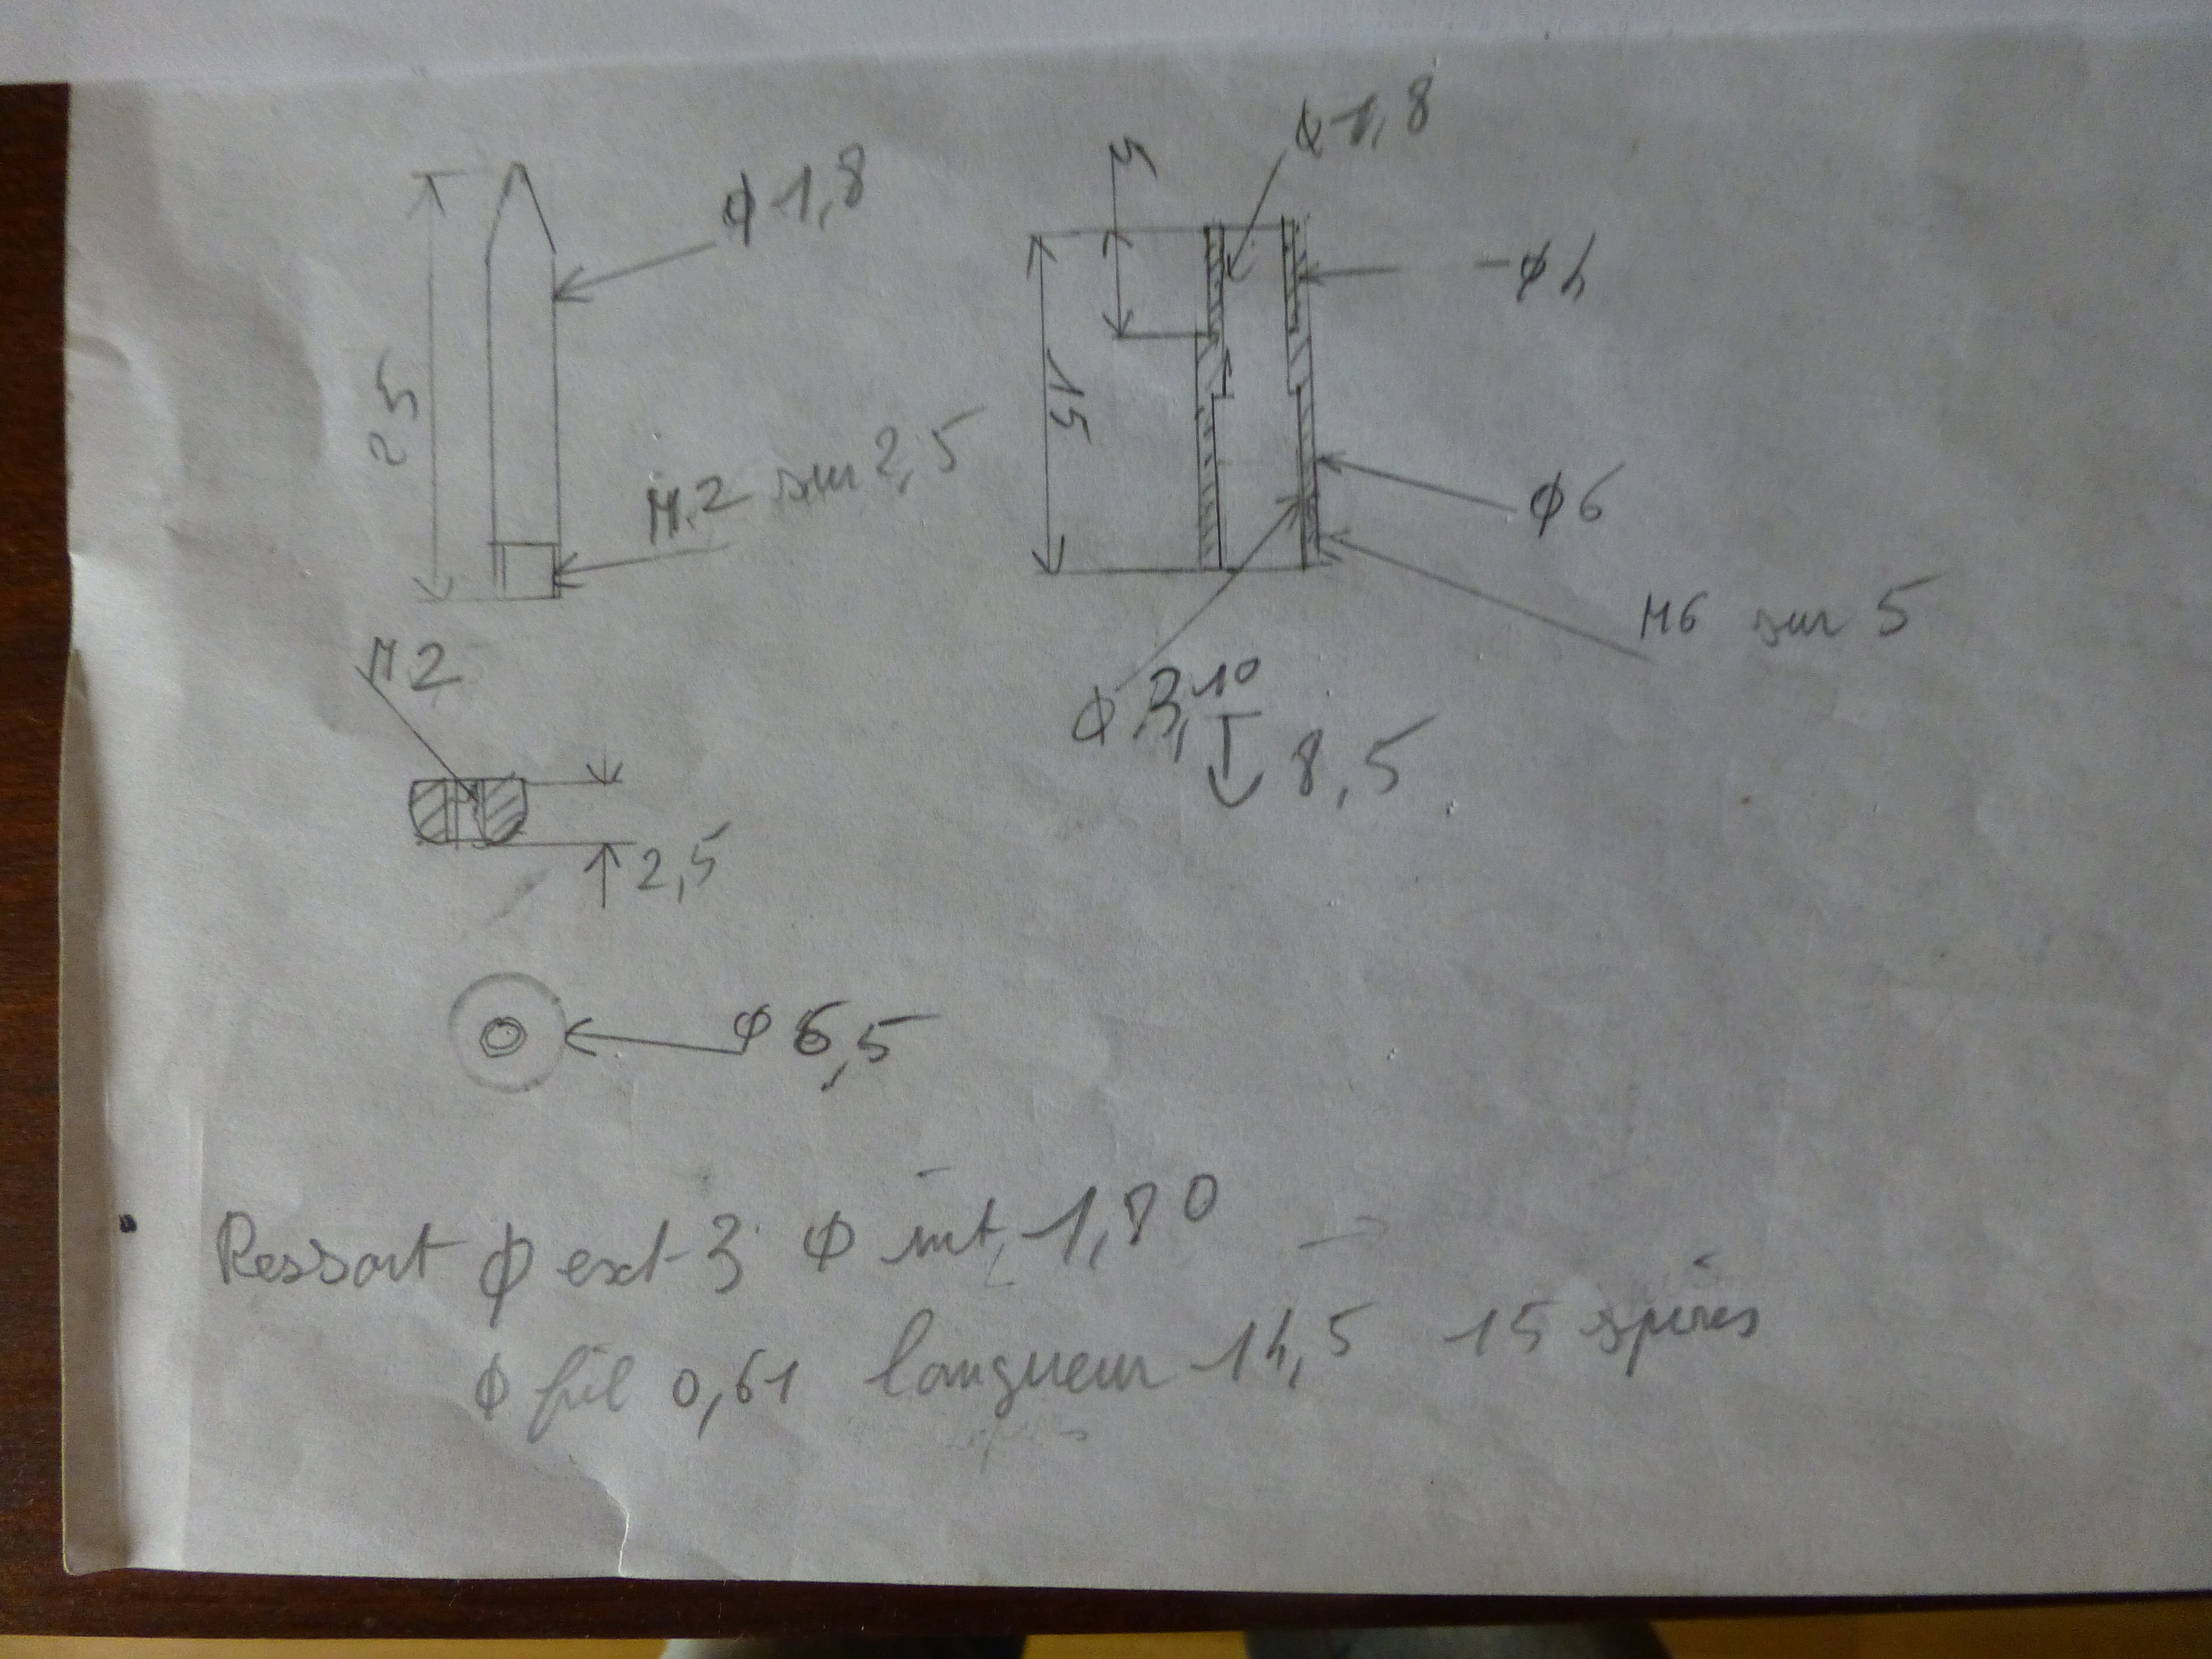 ϕ1,8
25
M2 sur 2,5
M2
2,5
ϕ 6,5
ϕ1,8
5
15
ϕ4
ϕ6
M6 sur 5
ϕ 3,10
↓ 8,5
Ressort ϕ ext 3 ϕ int 1,80
ϕ fil 0,61 longueur 14,5 15 spires